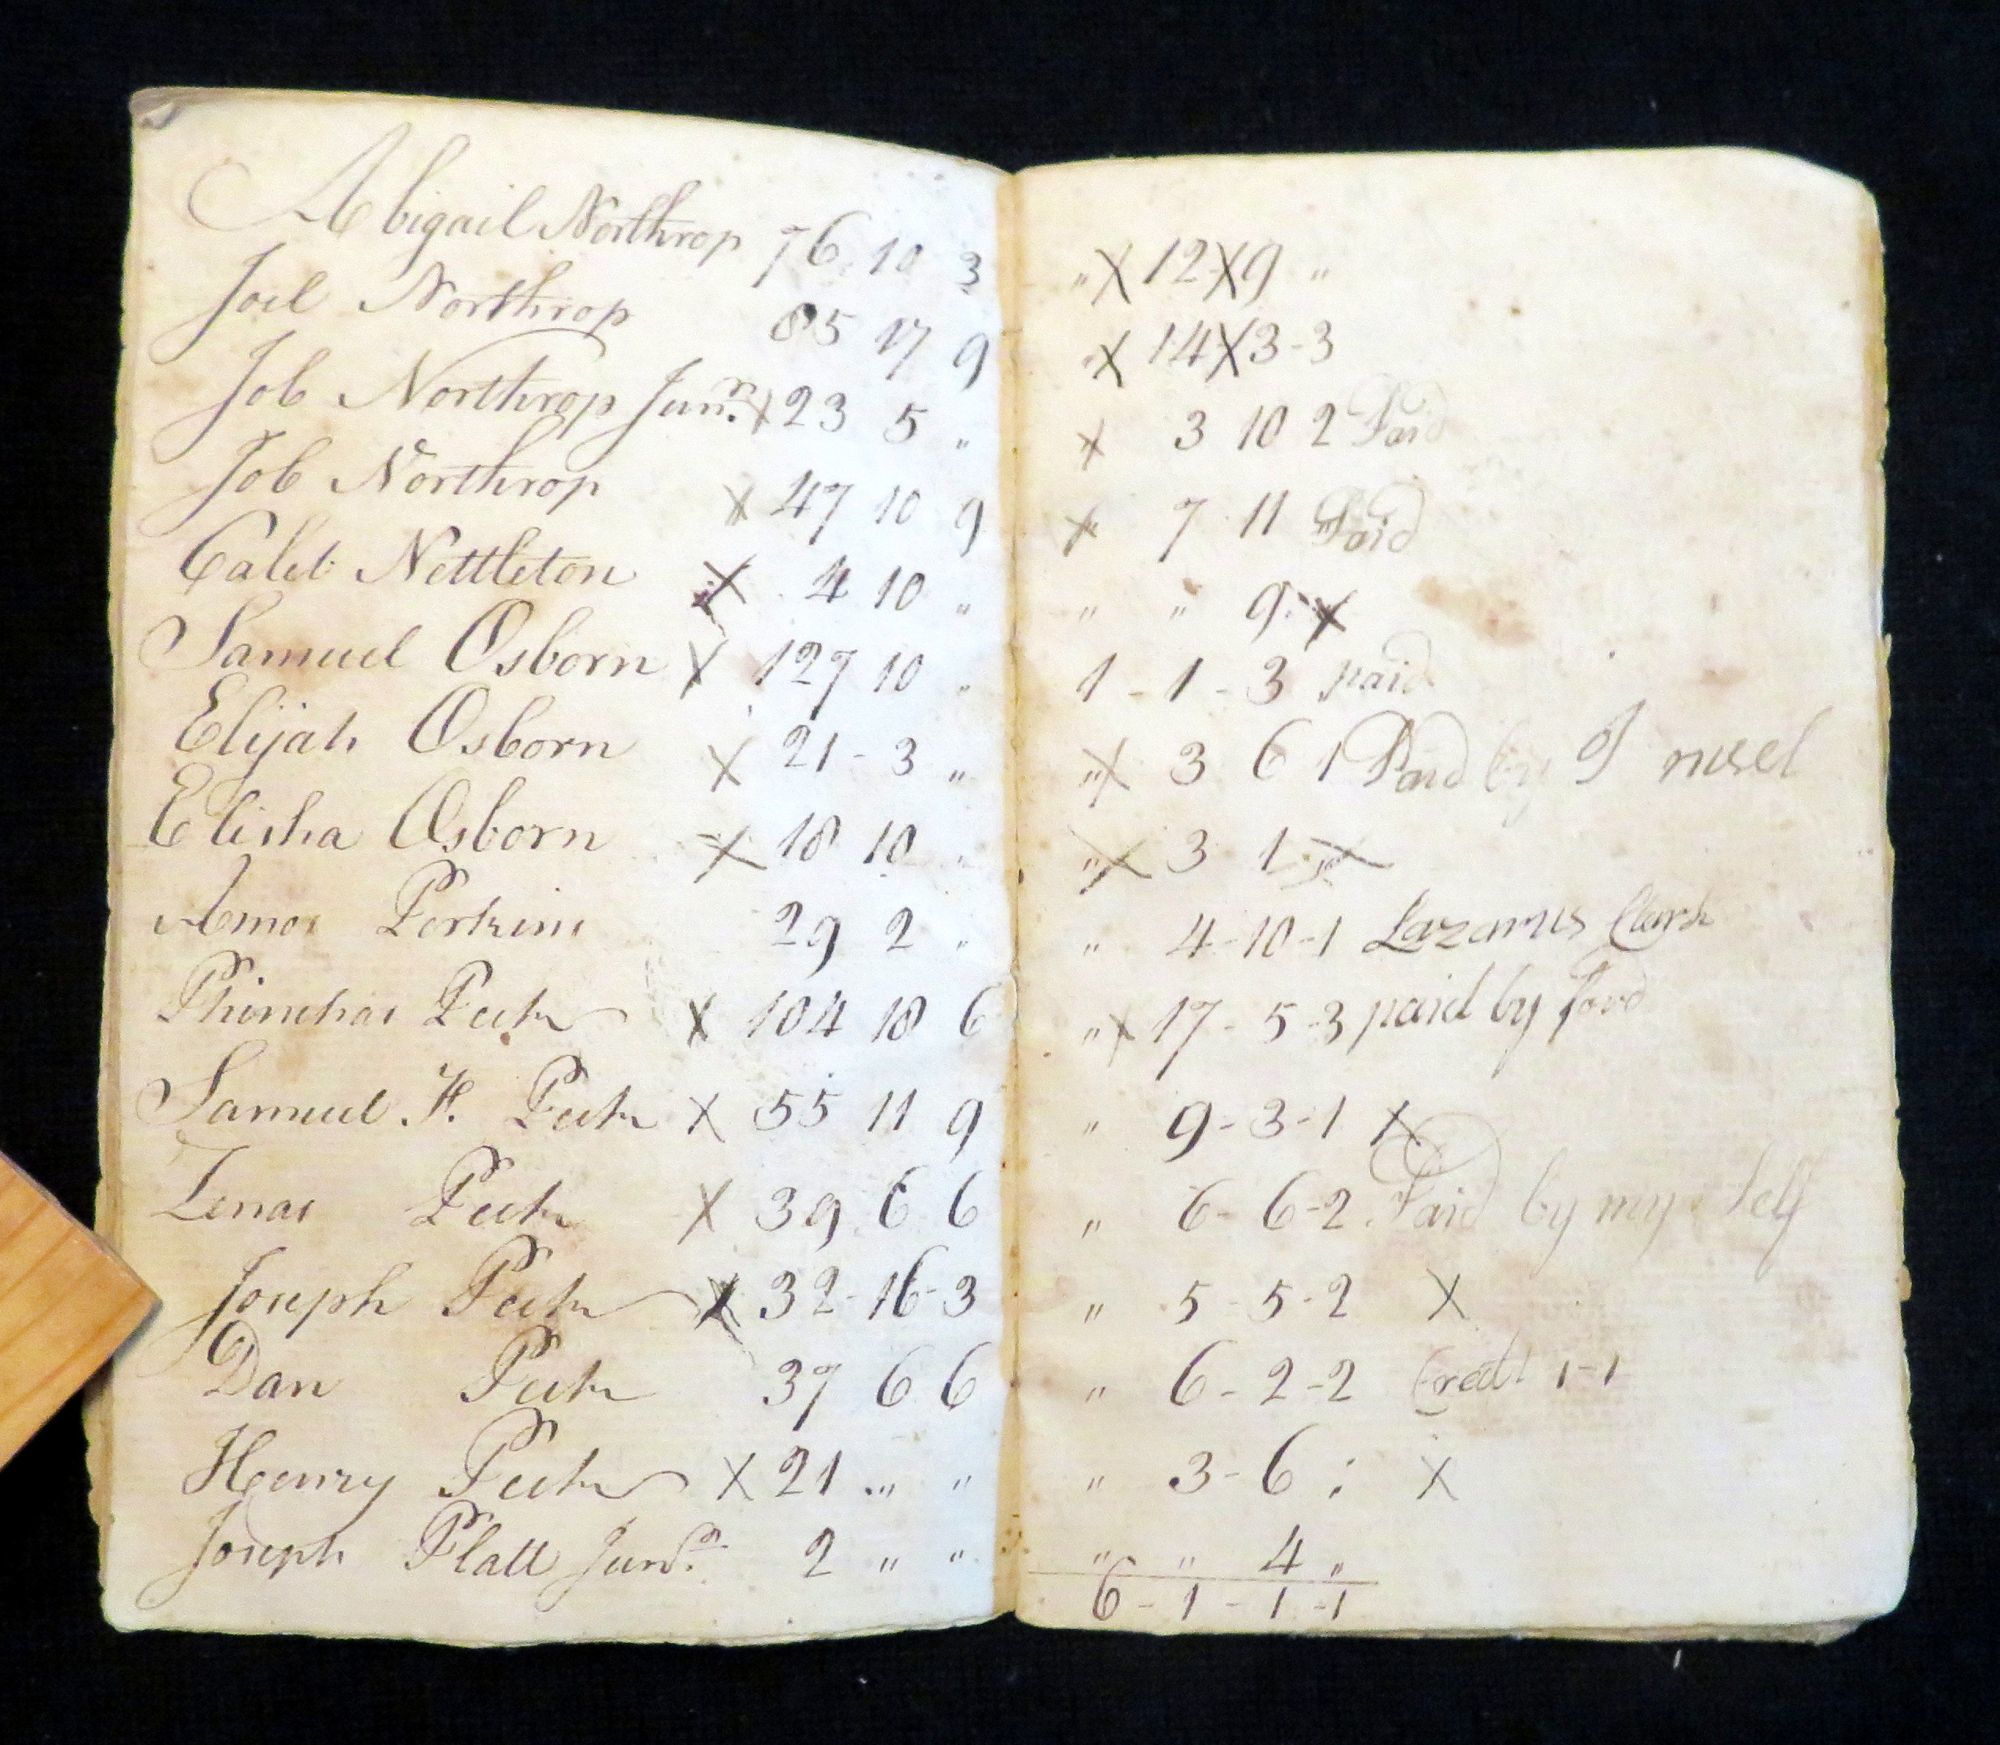 Abigail Northrop 76 10 3 " X 12 X 9 "
Joel Northrop 85 17 9 " X 14 X 3 - 3
Job Northrop Junr. X 23 5 " X 3 10 2 Paid
Job Northrop X 47 10 9 X 7 11 " Paid
Caleb Nettleton X 4 10 " " " 9 X
Samuel Osborn X 127 10 " 1 - 1 - 3 paid
Elijah Osborn X 21 - 3 " " X 3 6 1 Paid by
Elisha Osborn X 18 10 " " X 3 1 X
Amos Perkins 29 2 " " 4 - 10 - 1 Lazarus Clark
Phinehas Peck X 104 18 6 " X 17 - 5 - 3 paid by
Samuel F. Peck X 55 11 9 " 9 - 3 - 1 X
Zenas Peck X 39 6 6 " 6 - 6 - 2 Paid by my Self
Joseph Peck X 32 - 16 - 3 " 5 - 5 - 2 X
Dan Peck 37 6 6 " 6 - 2 - 2 Credt 1 - 1
Henry Peck X 21 " " " 3 - 6 : X
Joseph Platt Junr. 2 " " " " 4 "
6 - 1 - 1 - 1